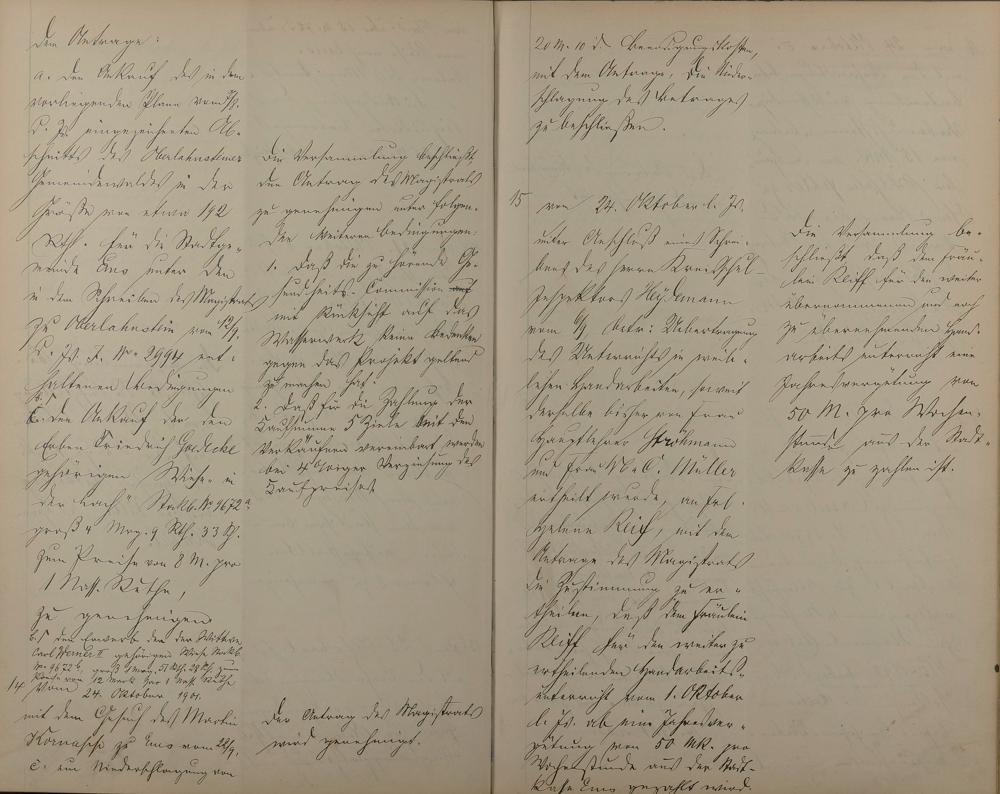 den Antrage:
a. den Ankauf des in dem
vorliegenden Plane vom
d. Js. eingezeichneten Ab-
schnitts des Oberlahnsteiner
Gemeindewaldes in der
Größe von etwa 192
Rth. für die Stadtge-
meinde Ems unter den
in dem Schreiben des Magistrats
zu Oberlahnstein vom 12/9.
d. Js. J. No. 2994 ent-
haltenen Bedingungen
den Ankauf der den
Erben Friedrich Goedecke
gehörigen Wiese in
der Bach Stockb. No 9672a
groß 4 Mrg. 9 Rth. 33 Sch.
zum Preise von 8 M. pro
1 Nass. Ruthe,
zu genehmigen
den Erwerb der der Wittwe
Carl Werner II gehörigen Wiese Stockb.
No. 9672b, groß 1 Mrg. 51 Rth. 28 Sch zum
Preise von 12 Mark pro 1 Nass. Ruthe
14 vom 24. Oktober 1901.
mit dem Gesuch des Martin
zu Ems vom 28/9.
c. um Niederschlagung von
Die Versammlung beschließt
den Antrag des Magistrats
zu genehmigen unter folgen-
den weiteren Bedingungen:
1. daß die zu hörende Ge-
sundheits-Commission
mit Rücksicht auf das
Wasserwerk keine Bedenken
gegen das Projekt geltend
zu machen hat.
2. daß für die Zahlung der
Kaufsumme 5 Ziele mit den
Verkäufern vereinbart werden
bei 4%iger Verzinsung des
Kaufpreises
Der Antrag des Magistrats
wird genehmigt.
20 M. 10 d
mit dem Antrage, die Nieder-
schlagung des Betrages
zu beschließen.
15 vom 24. Oktober l. Js.
unter Anschluß eines Schrei-
bens des Herrn Kreis-Schul-
Inspektors Heydemann
vom betr: Uebertragung
des Unterrichts in weib-
lichen Handarbeiten, soweit
derselbe bisher von Frau
Hauptlehrer Ströhmann
und Frau Müller
ertheilt wurde, an Frl.
Helene Reiff, mit dem
Antrage des Magistrats
die Zustimmung zu er-
theilen, daß dem Fräulein
Reiff für den weiter zu
ertheilenden Handarbeits-
unterricht vom 1. Oktober
l. Js. ab eine Jahresver-
gütung von 50 Mk. pro
Wochenstunde aus der Stadt-
kasse Ems gezahlt wird.
Die Versammlung be-
schließt, daß dem Fräu-
lein Reiff für den weiter
übernommenen und noch
zu übernehmenden Hand-
arbeitsunterricht eine
Jahresvergütung von
50 M. pro Wochen-
stunde aus der Stadt-
kasse zu zahlen ist.